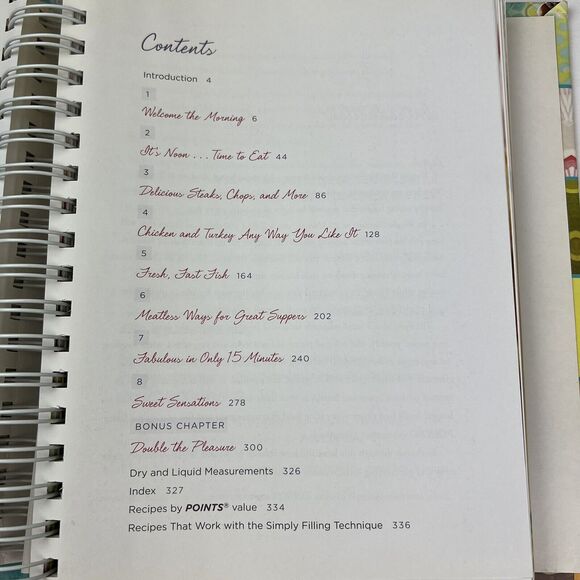 Contents
Introduction 4
1
Welcome the Morning 6
2
It's Noon . . . Time to Eat 44
3
Delicious Steaks, Chops, and More 86
4
Chicken and Turkey Any Way You Like It 128
5
Fresh, Fast Fish 164
6
Meatless Ways for Great Suppers 202
7
Fabulous in Only 15 Minutes 240
8
Sweet Sensations 278
BONUS CHAPTER
Double the Pleasure 300
Dry and Liquid Measurements 326
Index 327
Recipes by POINTS® value 334
Recipes That Work with the Simply Filling Technique 336